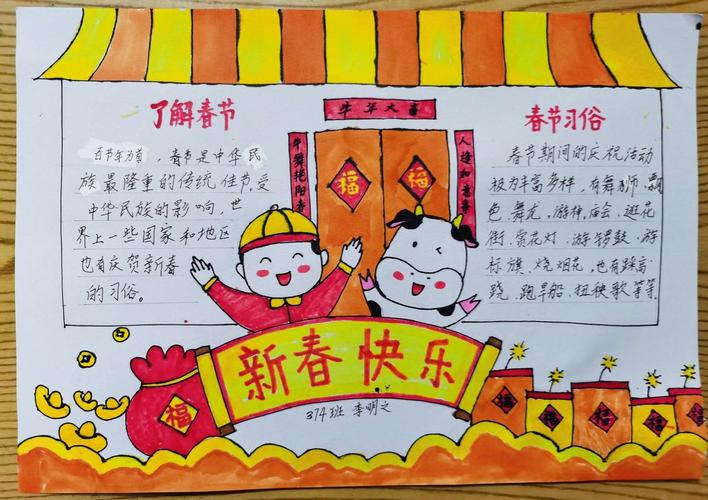 牛年大喜
牛舞艳阳春
人逢
福
福
了解春节
百节年为首，春节是中华民
族最隆重的传统佳节,受
中华民族的影响，世
界上一些国家和地区
也有庆贺新春
的习俗。
春节习俗
春节期间的庆祝活动
极为丰富多样，有舞狮、飘
色、舞龙、游神、庙会、逛花
街、赏花灯、游锣鼓、游
标旗、烧烟花,也有踩高
跷、跑旱船、扭秧歌等等。
新春快乐
374班 李明之
福
福
福
福
福
福